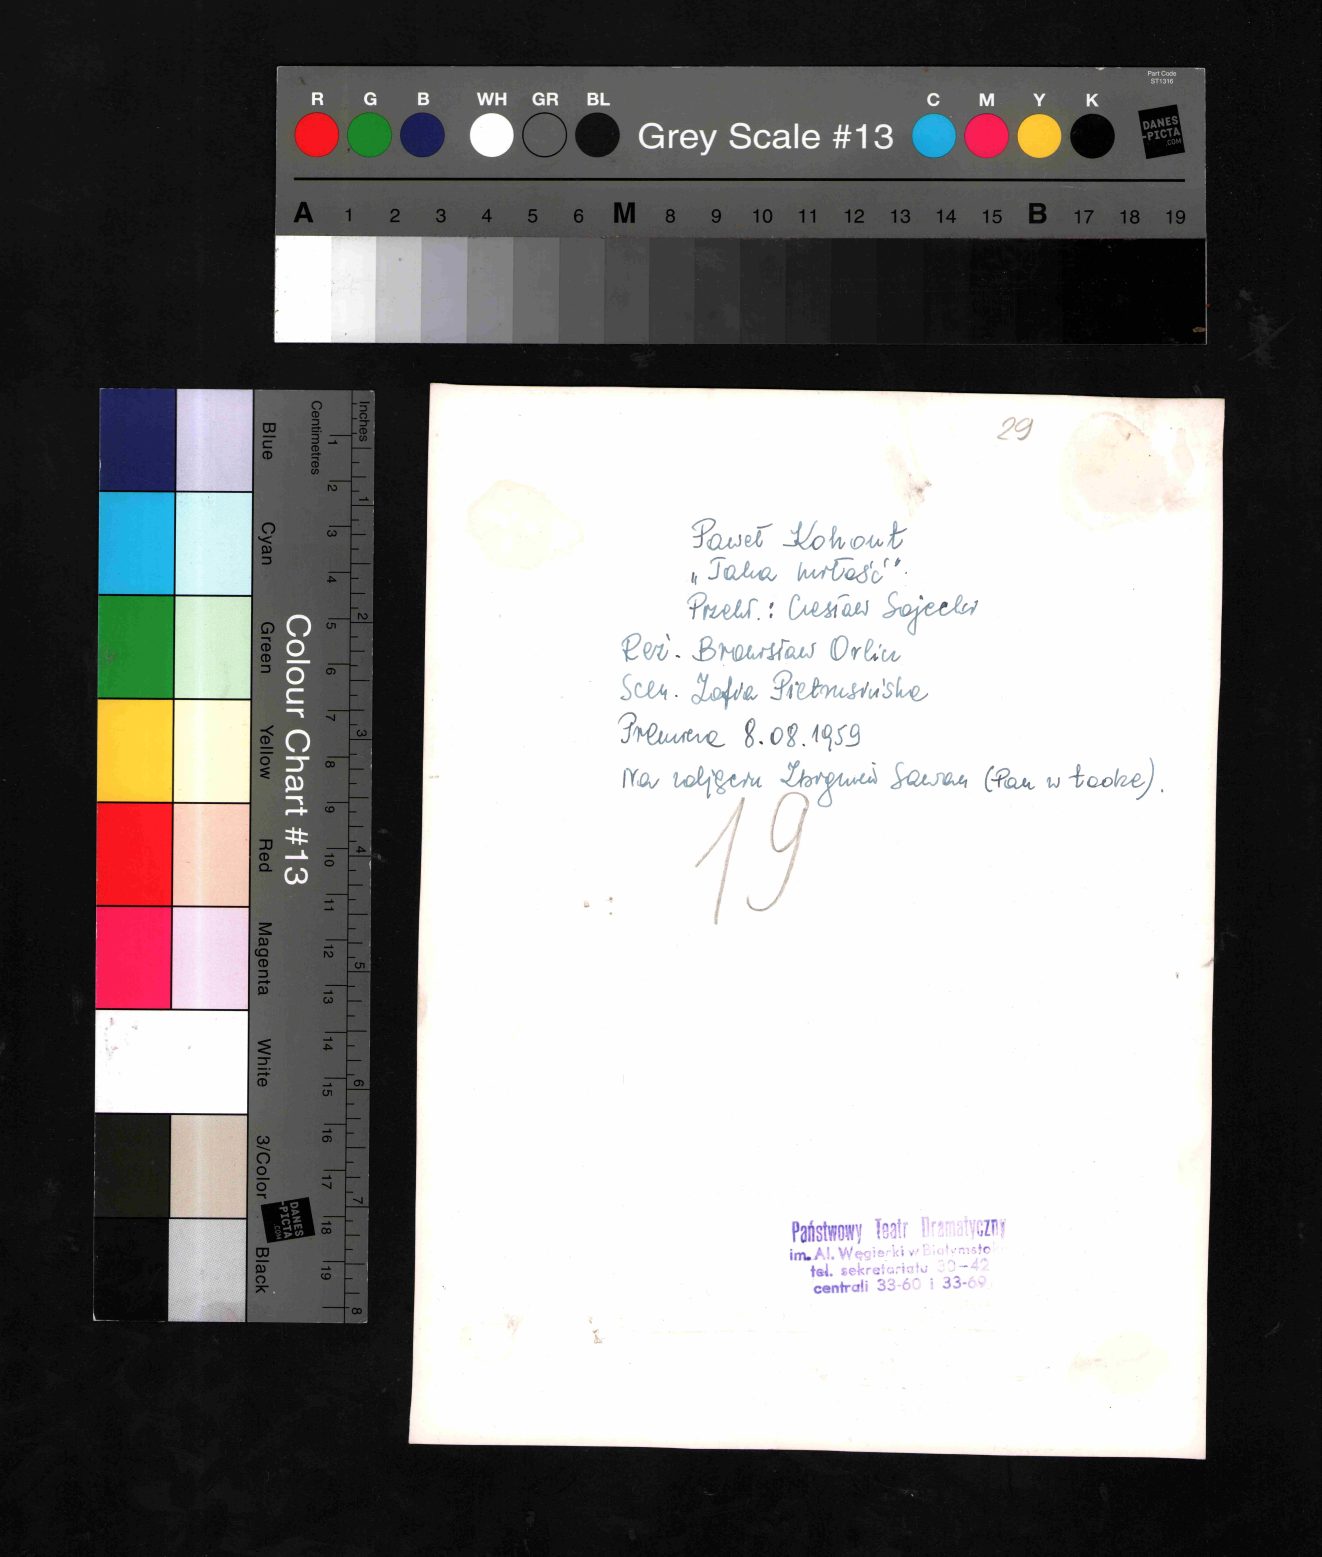 Part Code
ST1316
R G B WH GR BL Grey Scale #13 C M Y K
DANES
-PICTA
.COM
A 1 2 3 4 5 6 M 8 9 10 11 12 13 14 15 B 17 18 19
Colour Chart #13
Blue
Cyan
Green
Yellow
Red
Magenta
White
3/Color
Black
Centimetres
1 2 3 4 5 6 7 8 9 10 11 12 13 14 15 16 17 18 19
Inches
1 2 3 4 5 6 7 8
DANES
-PICTA
.COM
29
Paweł Kohout
„Taka miłość".
Przekł.: Czesław Sojecki
Reż. Bronisław Orlicz
Scen. Zofia Pietrusińska
Premiera 8.08.1959
Na zdjęciu Zbigniew Sawan (Pan w todze).
19
Państwowy Teatr Dramatyczny
im. Al. Węgierki w Białymsto
tel. sekretariatu 30-42
centrali 33-60 i 33-69